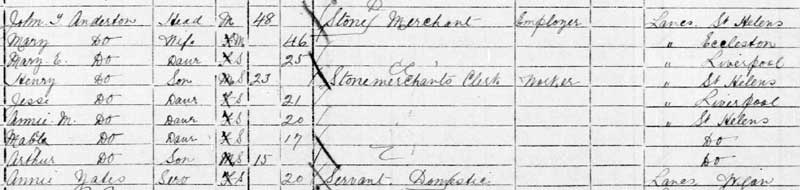 John T Anderton Head M 48 Stone Merchant Employer Lancs St Helens
Mary Do Wife M 46 " Eccleston
Mary E. Do Daur S 25 " Liverpool
Henry Do Son S 23 Stonemerchants Clerk Worker " St Helens
Jessie Do Daur S 21 " Liverpool
Annie M. Do Daur S 20 " St Helens
Mable Do Daur S 17 Do
Arthur Do Son S 15 Do
Annie Yates Serv S 20 Servant Domestic Lancs Wigan